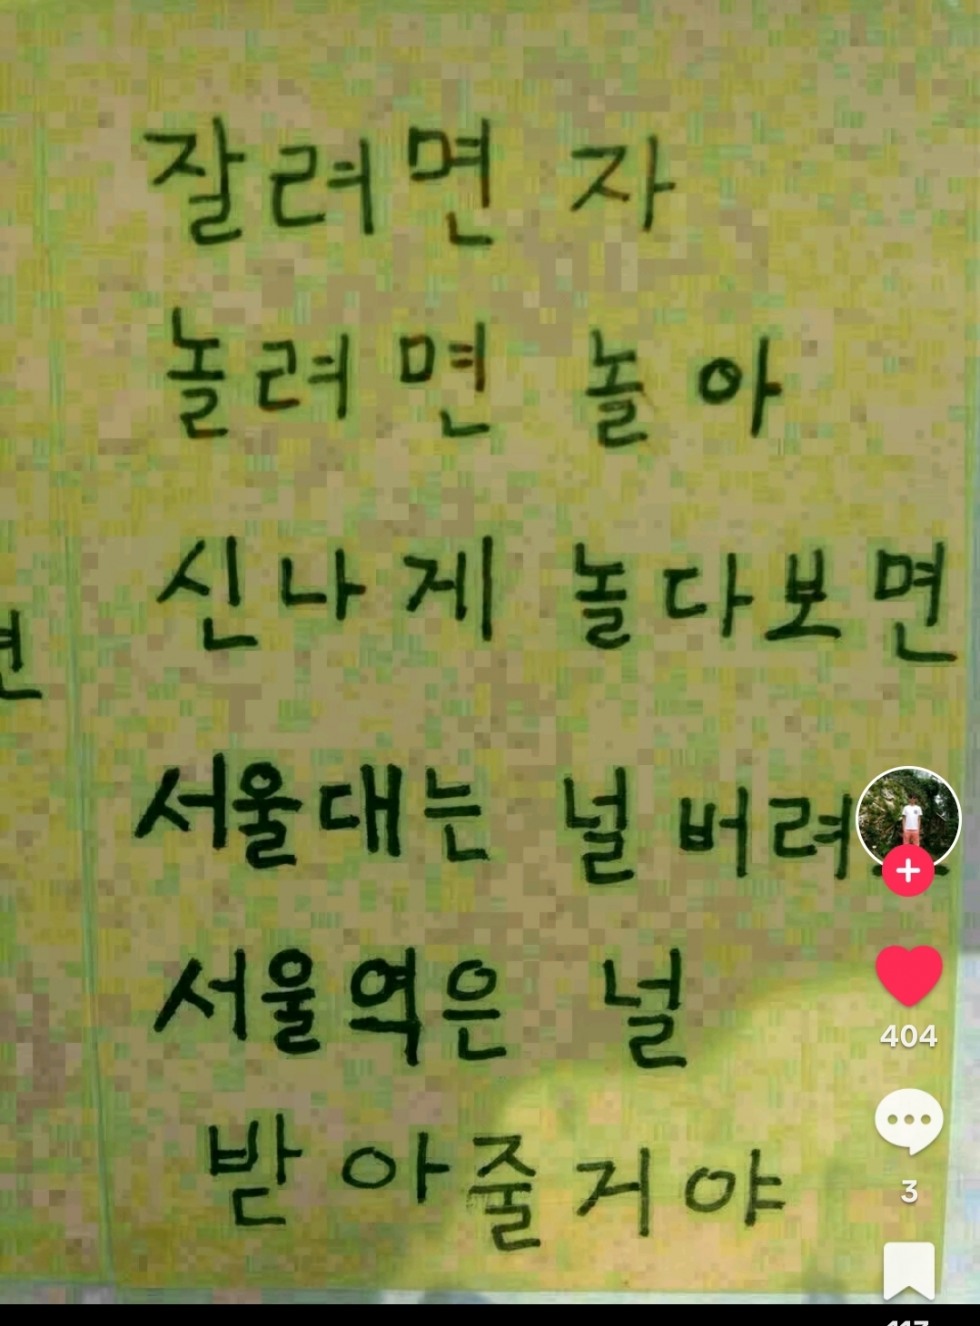 잘려면 자
놀려면 놀아
신나게 놀다보면
면
서울대는 널
서울역은 널
받아줄거야
404
3